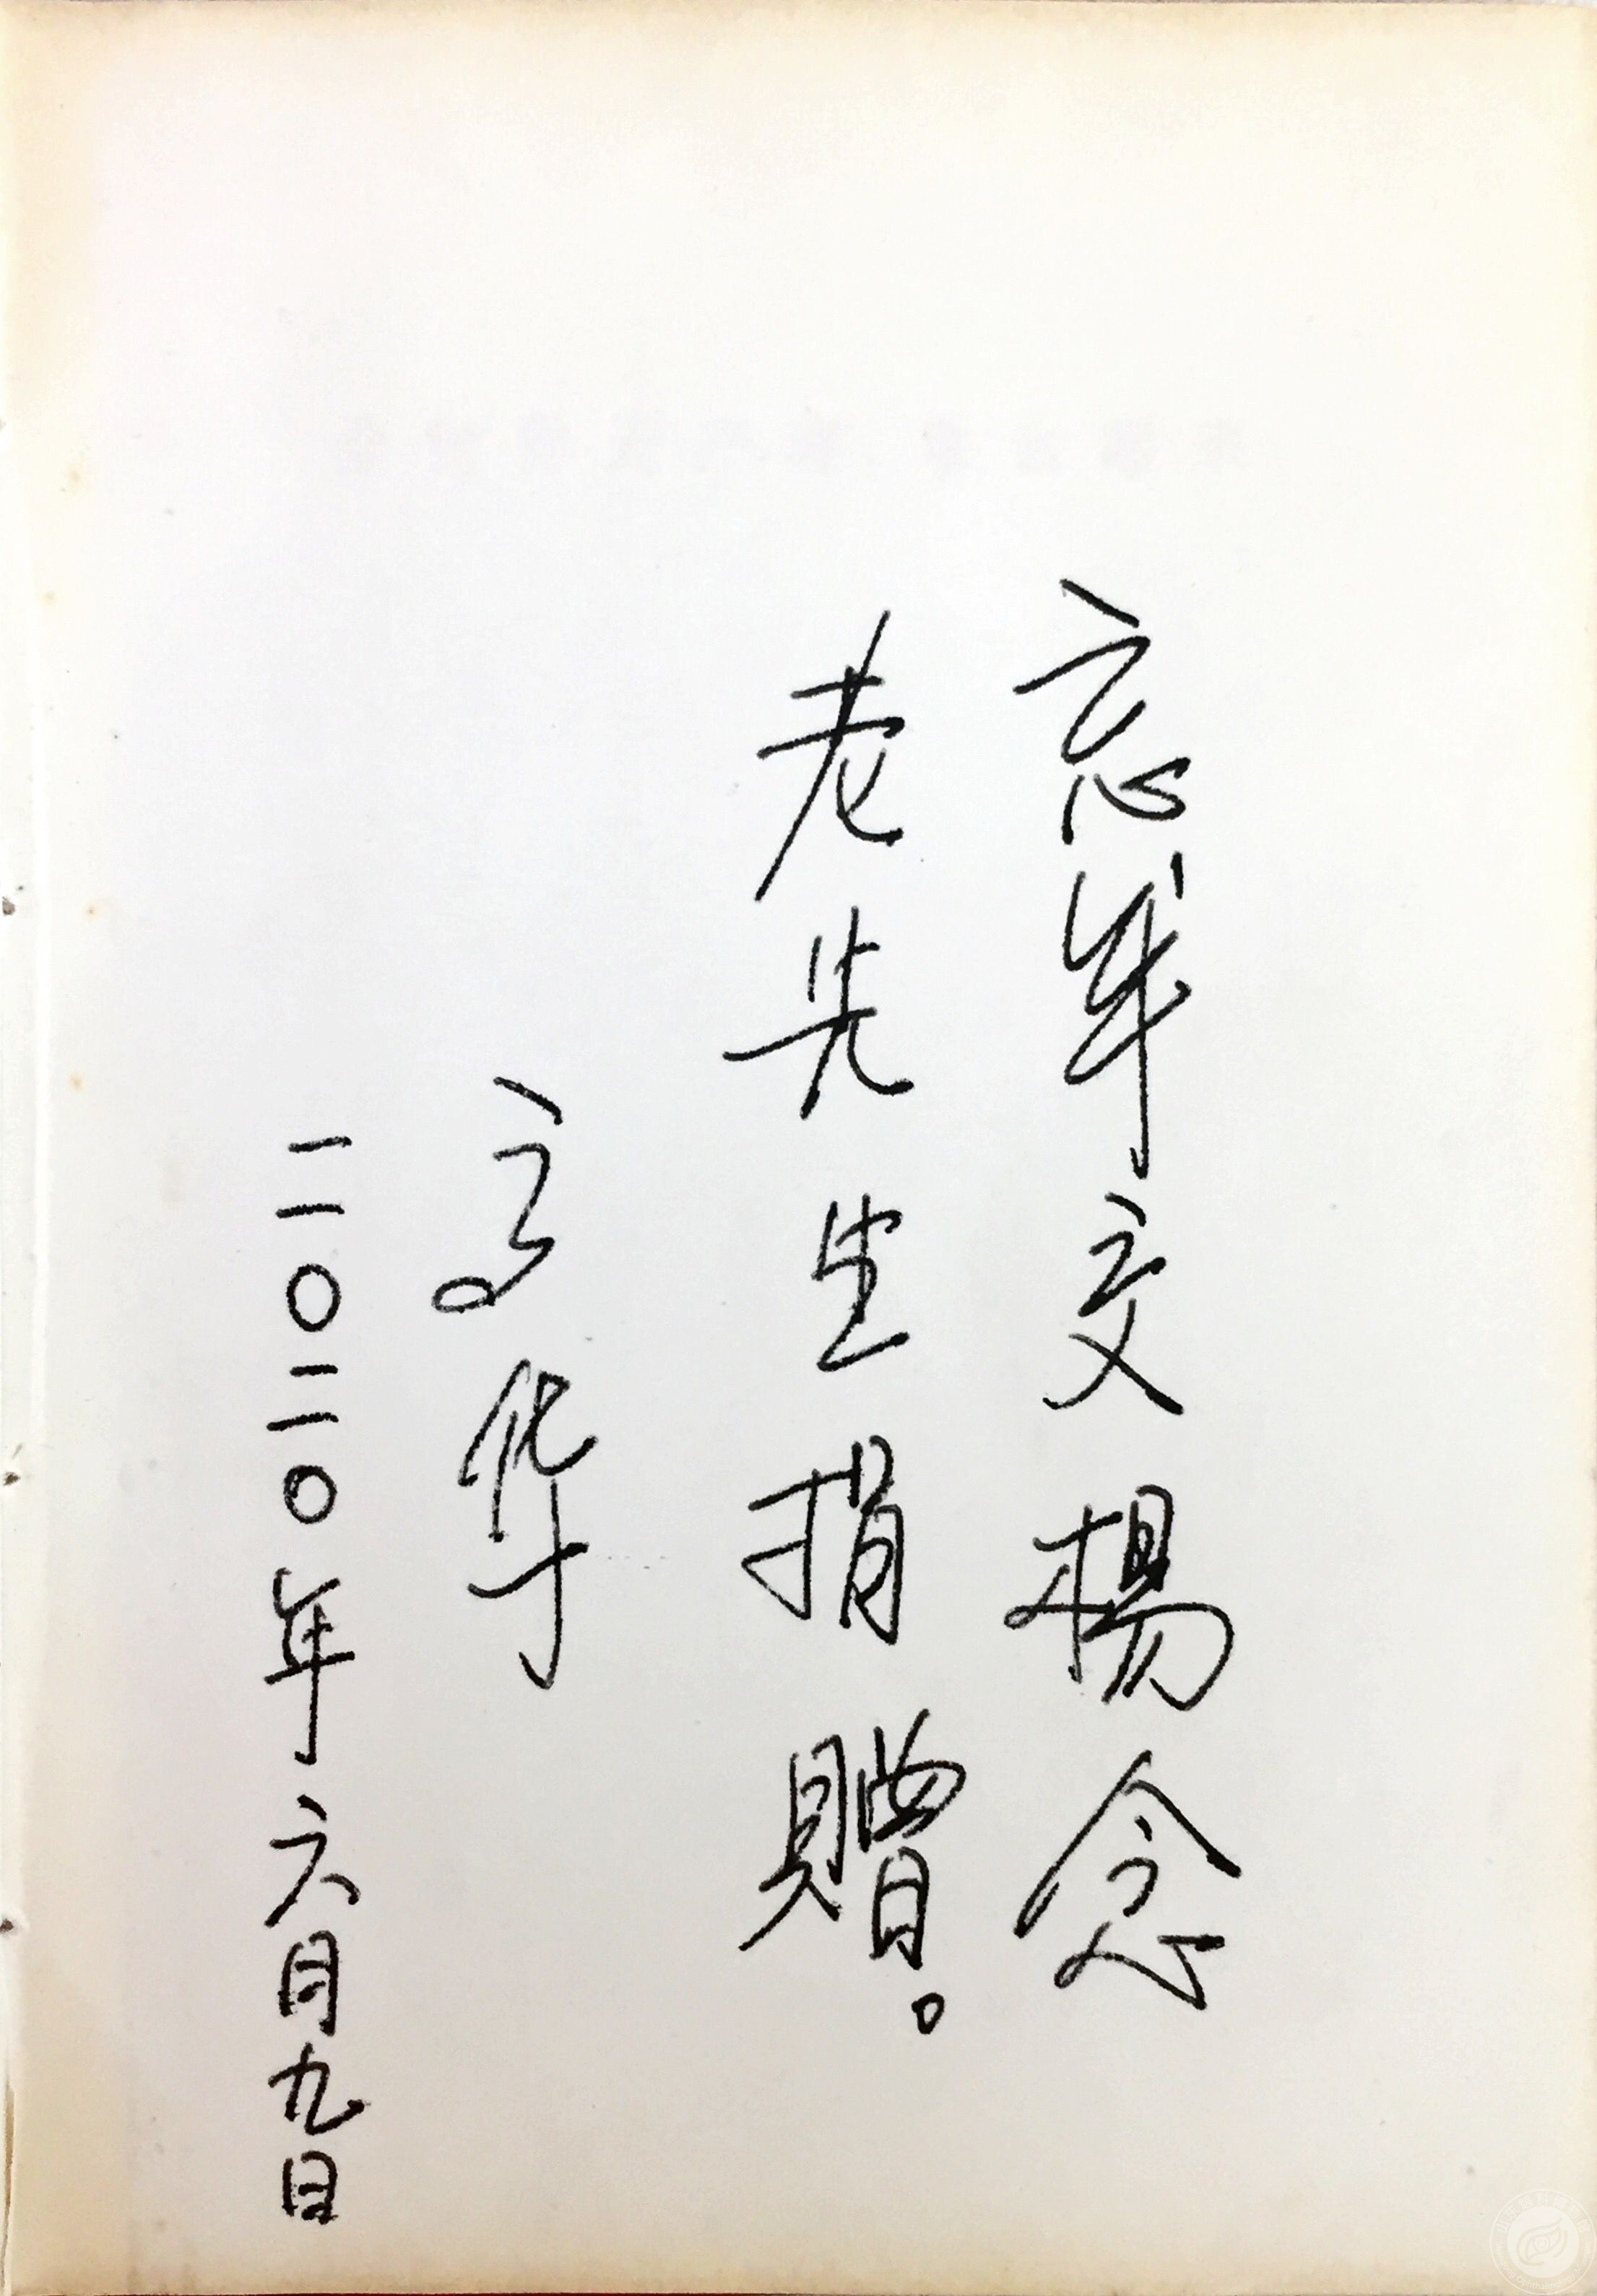 忘年交楊念
老先生捐贈。
高华
二〇二〇年六月九日